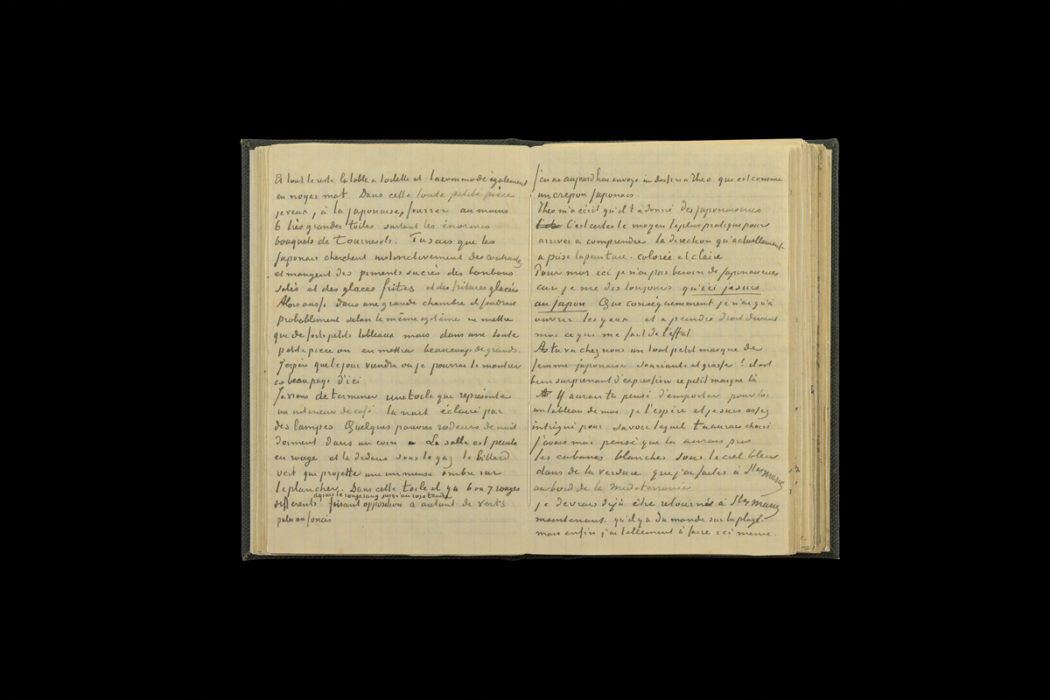 Et tout le reste la table à toilette et la commode également
en noyer mat. Dans cette toute petite pièce
je veux, à la japonaise, fourrer au moins
6 très grandes toiles surtout les énormes
bouquets de tournesols. Tu sais que les
Japonais cherchent instinctivement des contrastes
et mangent des piments sucrés des bonbons
salés et des glaces frites et des fritures glacées
Alors aussi dans une grande chambre il faudrait
probablement selon le même système ne mettre
que de forts petits tableaux mais dans une toute
petite pièce on en mettra beaucoup de grands.
J'espère que le jour viendra où je pourrai te montrer
ce beau pays d'ici
Je viens de terminer une toile qui représente
un intérieur de café la nuit éclairé par
des lampes. Quelques pauvres rodeurs de nuit
dorment dans un coin La salle est peinte
en rouge et là dedans sous le gaz le billard
vert qui projette une immense ombre sur
le plancher. Dans cette toile il y a 6 ou 7 rouges
depuis le rouge sang jusqu'au rose tendre
différents faisant opposition à autant de verts
pales ou foncés
J'en ai aujourd'hui envoyé un dessin à Theo qui est comme
un crépon japonais.
Theo m'a écrit qu'il t'a donné des japonaiseries
C'est certes le moyen le plus pratique pour
arriver à comprendre la direction qu'actuellement
a prise la peinture. colorée et claire
Pour moi ici je n'ai pas besoin de japonaiseries
car je me dis toujours qu'ici je suis
au Japon Que conséquemment je n'ai qu'à
ouvrir les yeux et à peindre droit devant
moi ce qui me fait de l'effet
As tu vu chez nous un tout petit masque de
femme japonaise souriante et grasse? il est
bien surprenant d'expression ce petit masque là
Y auras tu pensé d'emporter pour toi
un tableau de moi je l'espère et je suis assez
intrigué pour savoir lequel tu auras choisi
j'avais moi pensé que tu aurais pris
les cabanes blanches sous le ciel bleu
dans de la verdure que j'ai faites à Stes maries
au bord de la méditerranée
je devrais déjà être retourné à Stes maries
maintenant qu'il y a du monde sur la plage.
mais enfin, j'ai tellement à faire ici même.